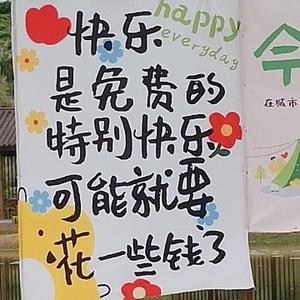 happy
everyday
快乐
是免费的
特别快乐
可能就要
花一些钱了
今
在城市